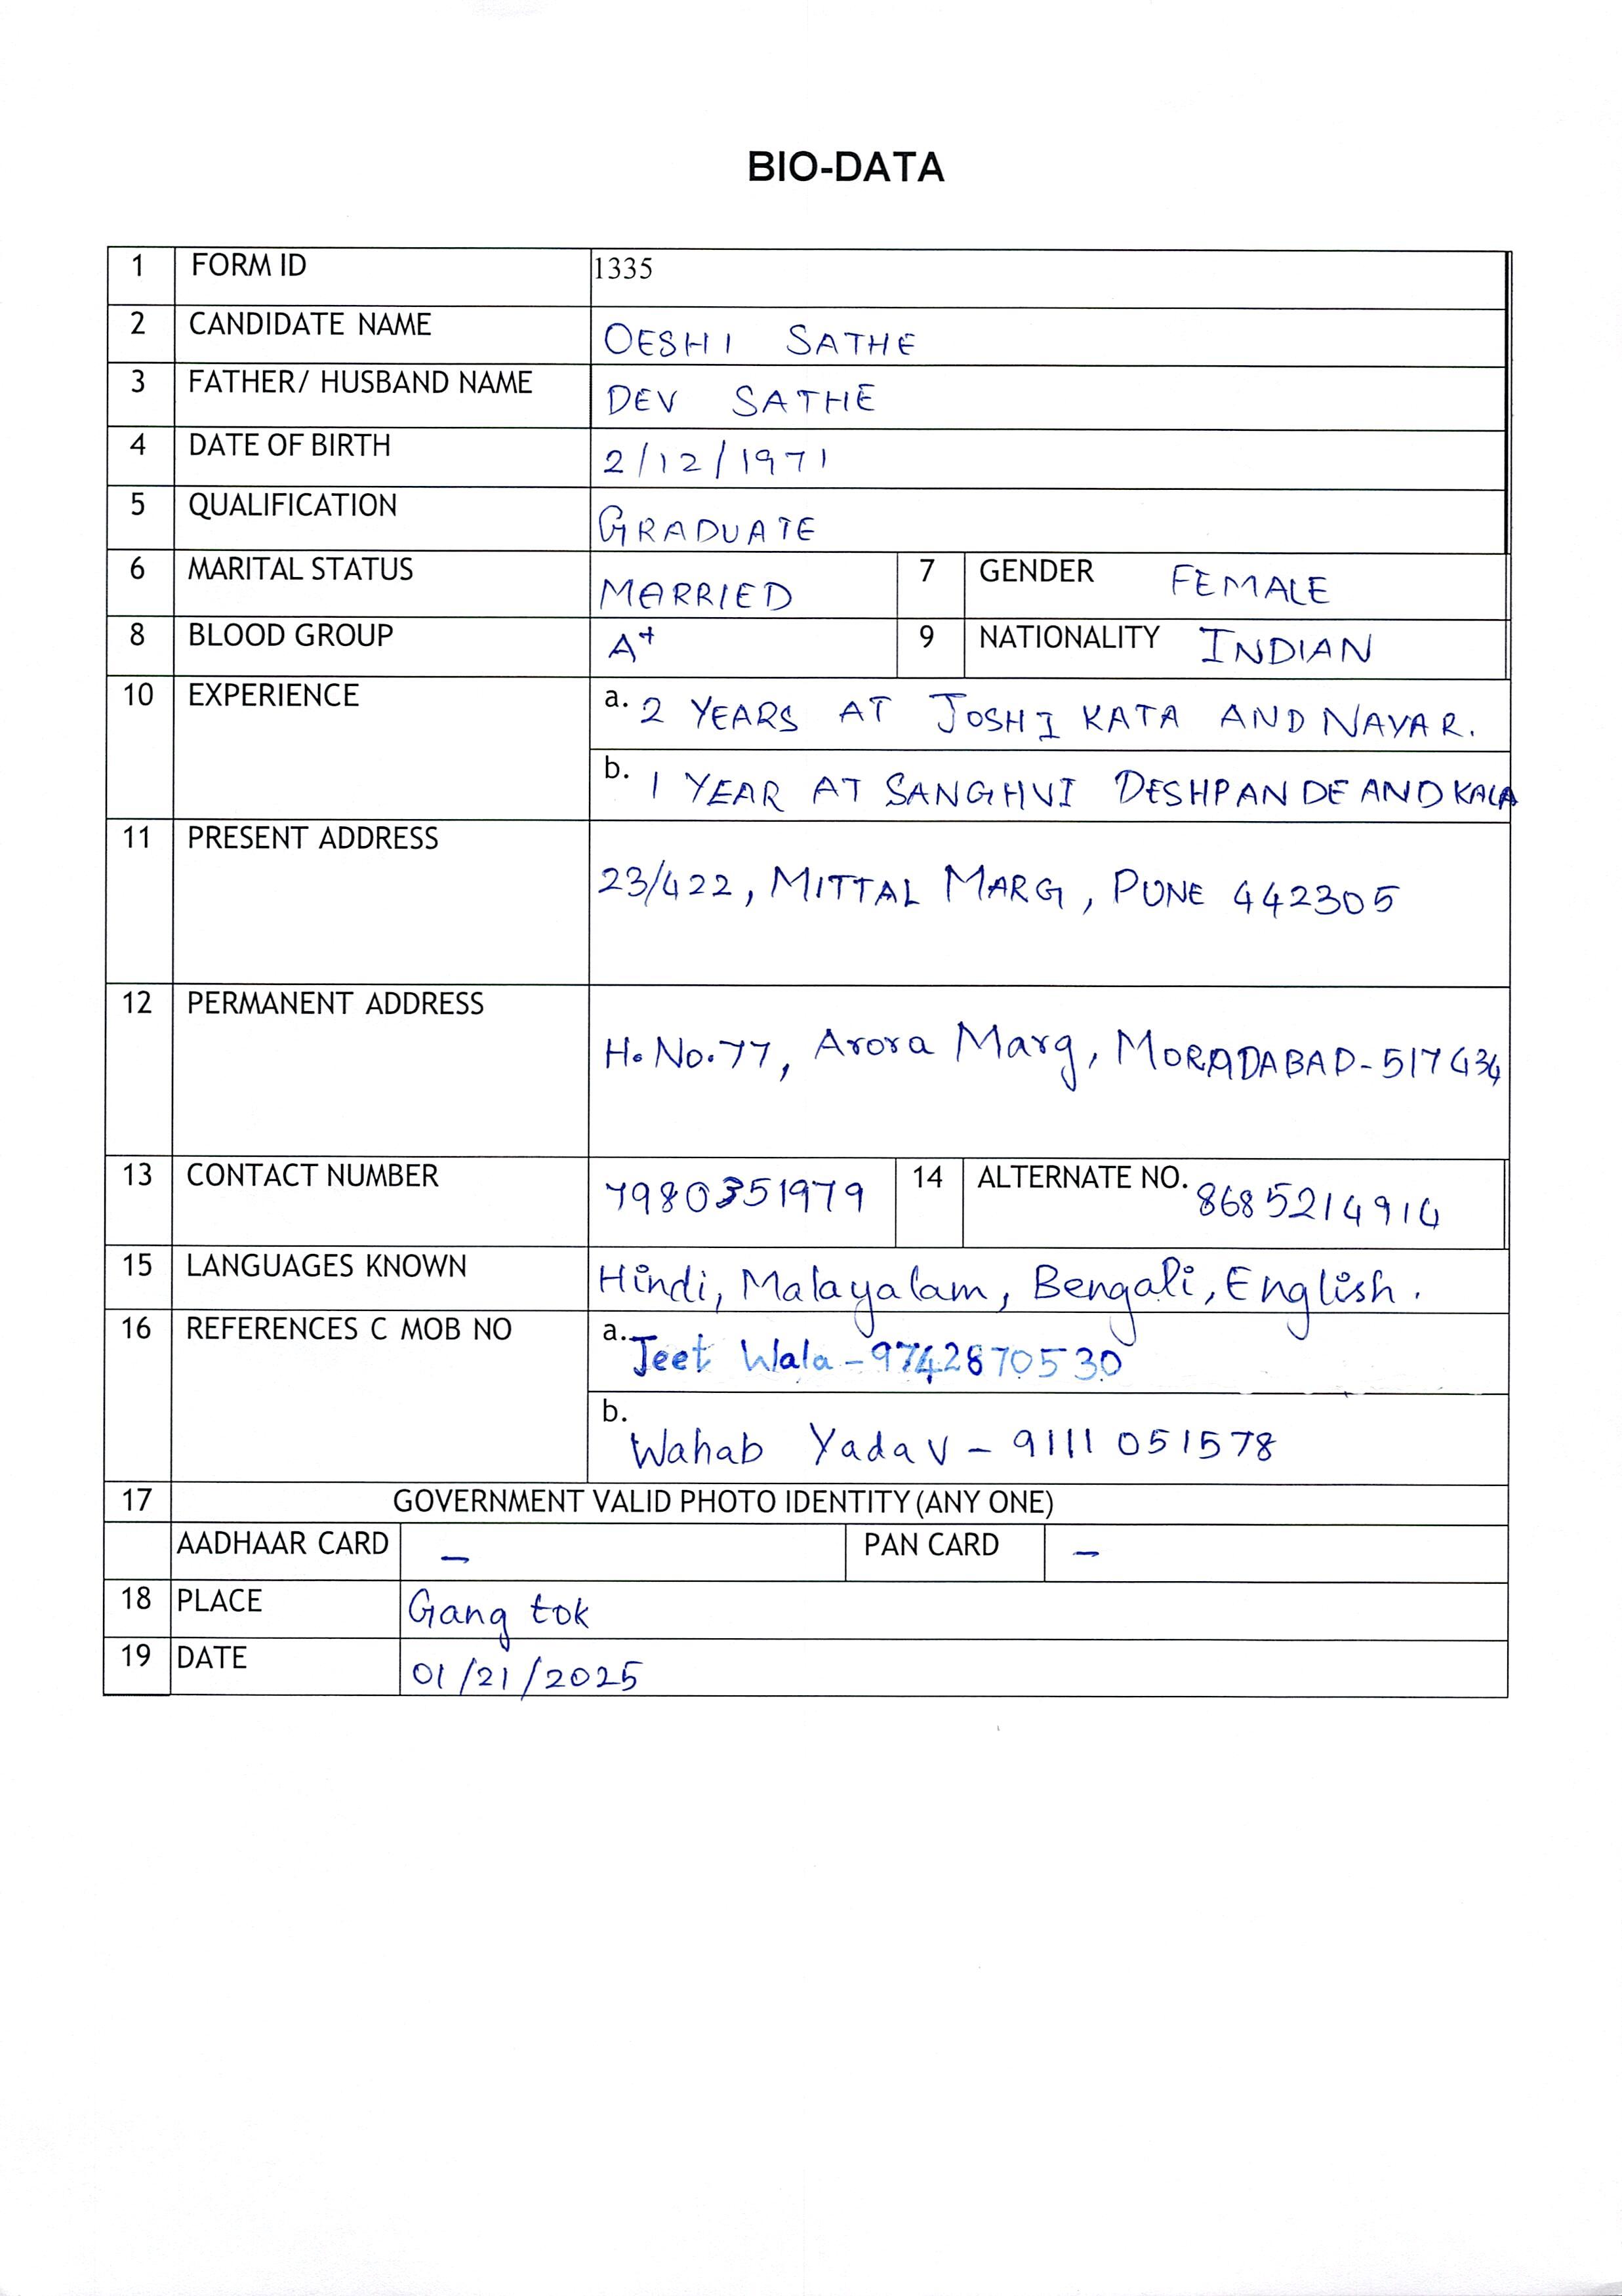 BIO-DATA
1 FORM ID 1335
2 CANDIDATE NAME OESHI SATHE
3 FATHER/ HUSBAND NAME DEV SATHE
4 DATE OF BIRTH 2/12/1971
5 QUALIFICATION GRADUATE
6 MARITAL STATUS MARRIED 7 GENDER FEMALE
8 BLOOD GROUP A+ 9 NATIONALITY INDIAN
10 EXPERIENCE a. 2 YEARS AT JOSHI KATA AND NAYAR.
b. 1 YEAR AT SANGHVI DESHPANDE AND KALA
11 PRESENT ADDRESS
23/422, MITTAL MARG, PUNE 442305
12 PERMANENT ADDRESS
H. No. 77, Arora Marg, MORADABAD-517434
13 CONTACT NUMBER 7980351979 14 ALTERNATE NO. 8685214914
15 LANGUAGES KNOWN Hindi, Malayalam, Bengali, English.
16 REFERENCES C MOB NO a. Jeet Wala - 9742870530
b. Wahab Yadav - 9111051578
17 GOVERNMENT VALID PHOTO IDENTITY (ANY ONE)
AADHAAR CARD - PAN CARD -
18 PLACE Gangtok
19 DATE 01/21/2025